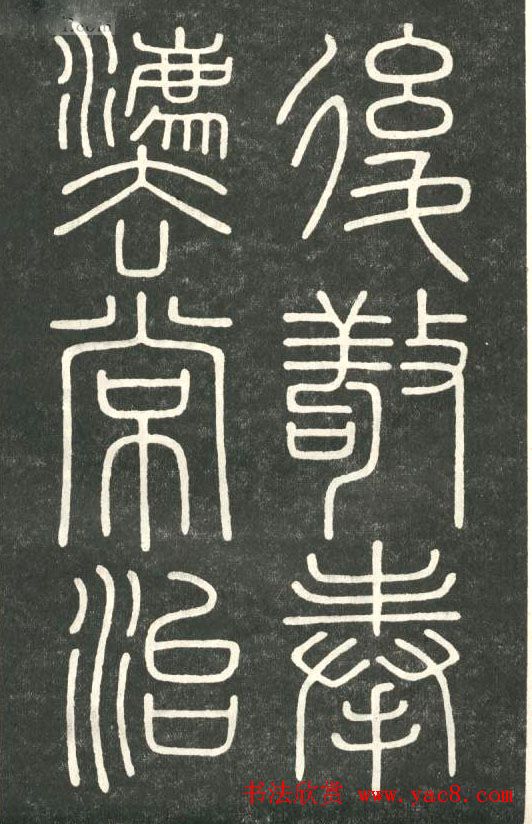 後敬奉
灋常治
书法欣赏 www.yac8.com